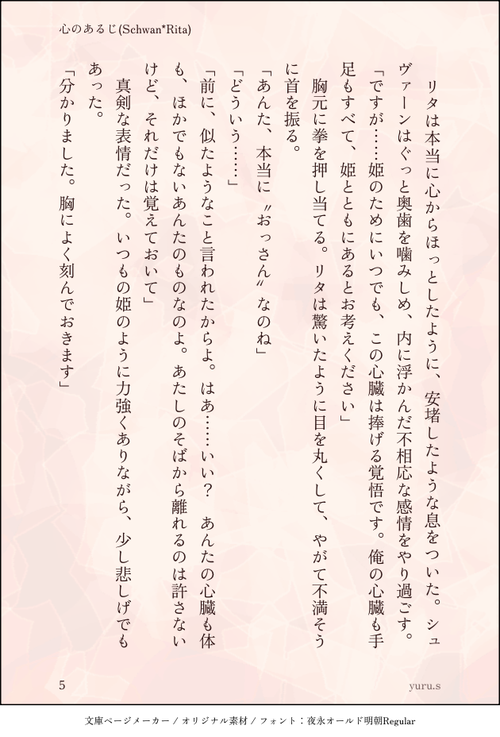 心のあるじ(Schwan*Rita)
　リタは本当に心からほっとしたように、安堵したような息をついた。シュ
ヴァーンはぐっと奥歯を噛みしめ、内に浮かんだ不相応な感情をやり過ごす。
「ですが……姫のためにいつでも、この心臓は捧げる覚悟です。俺の心臓も手
足もすべて、姫とともにあるとお考えください」
　胸元に拳を押し当てる。リタは驚いたように目を丸くして、やがて不満そう
に首を振る。
「あんた、本当に〝おっさん〟なのね」
「どういう……」
「前に、似たようなこと言われたからよ。はあ……いい？　あんたの心臓も体
も、ほかでもないあんたのものなのよ。あたしのそばから離れるのは許さない
けど、それだけは覚えておいて」
　真剣な表情だった。いつもの姫のように力強くありながら、少し悲しげでも
あった。
「分かりました。胸によく刻んでおきます」
5
yuru.s
文庫ページメーカー / オリジナル素材 / フォント：夜永オールド明朝Regular